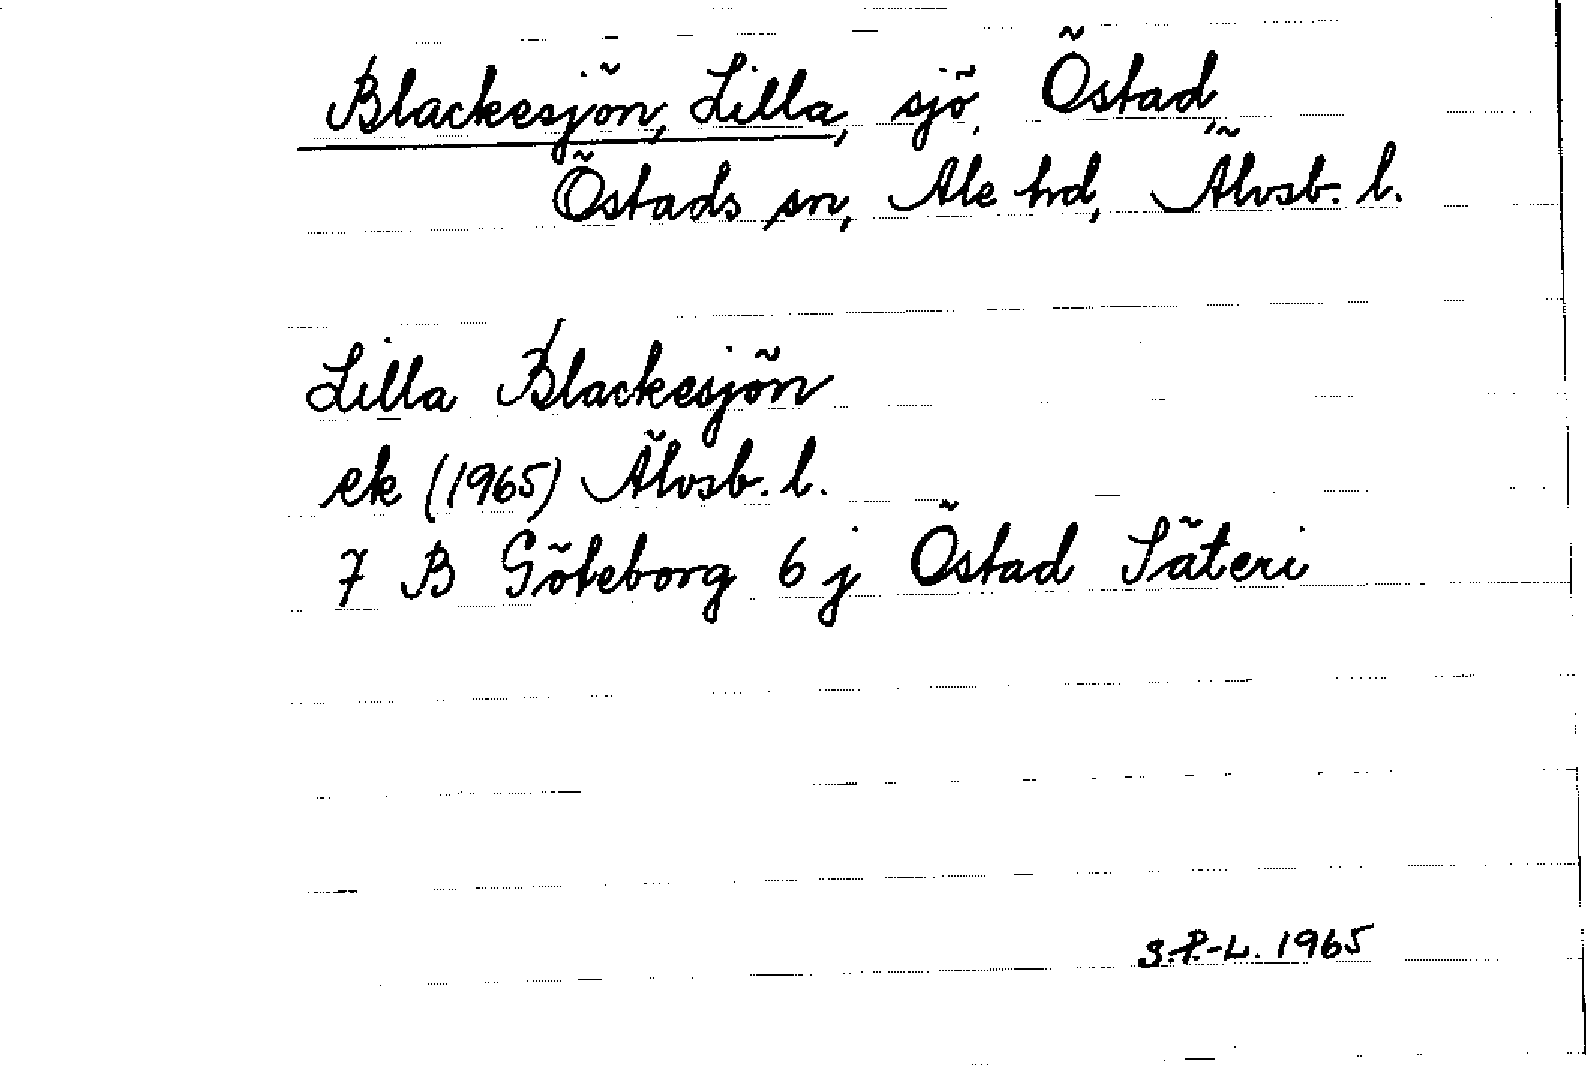 Blackesjön, Lilla, sjö, Östad,
Östads sn, Ale hd, Älvsb. l.
Lilla Blackesjön
ek (1965) Älvsb. l.
7 B Göteborg 6 j Östad Säteri
S.P.-L. 1965